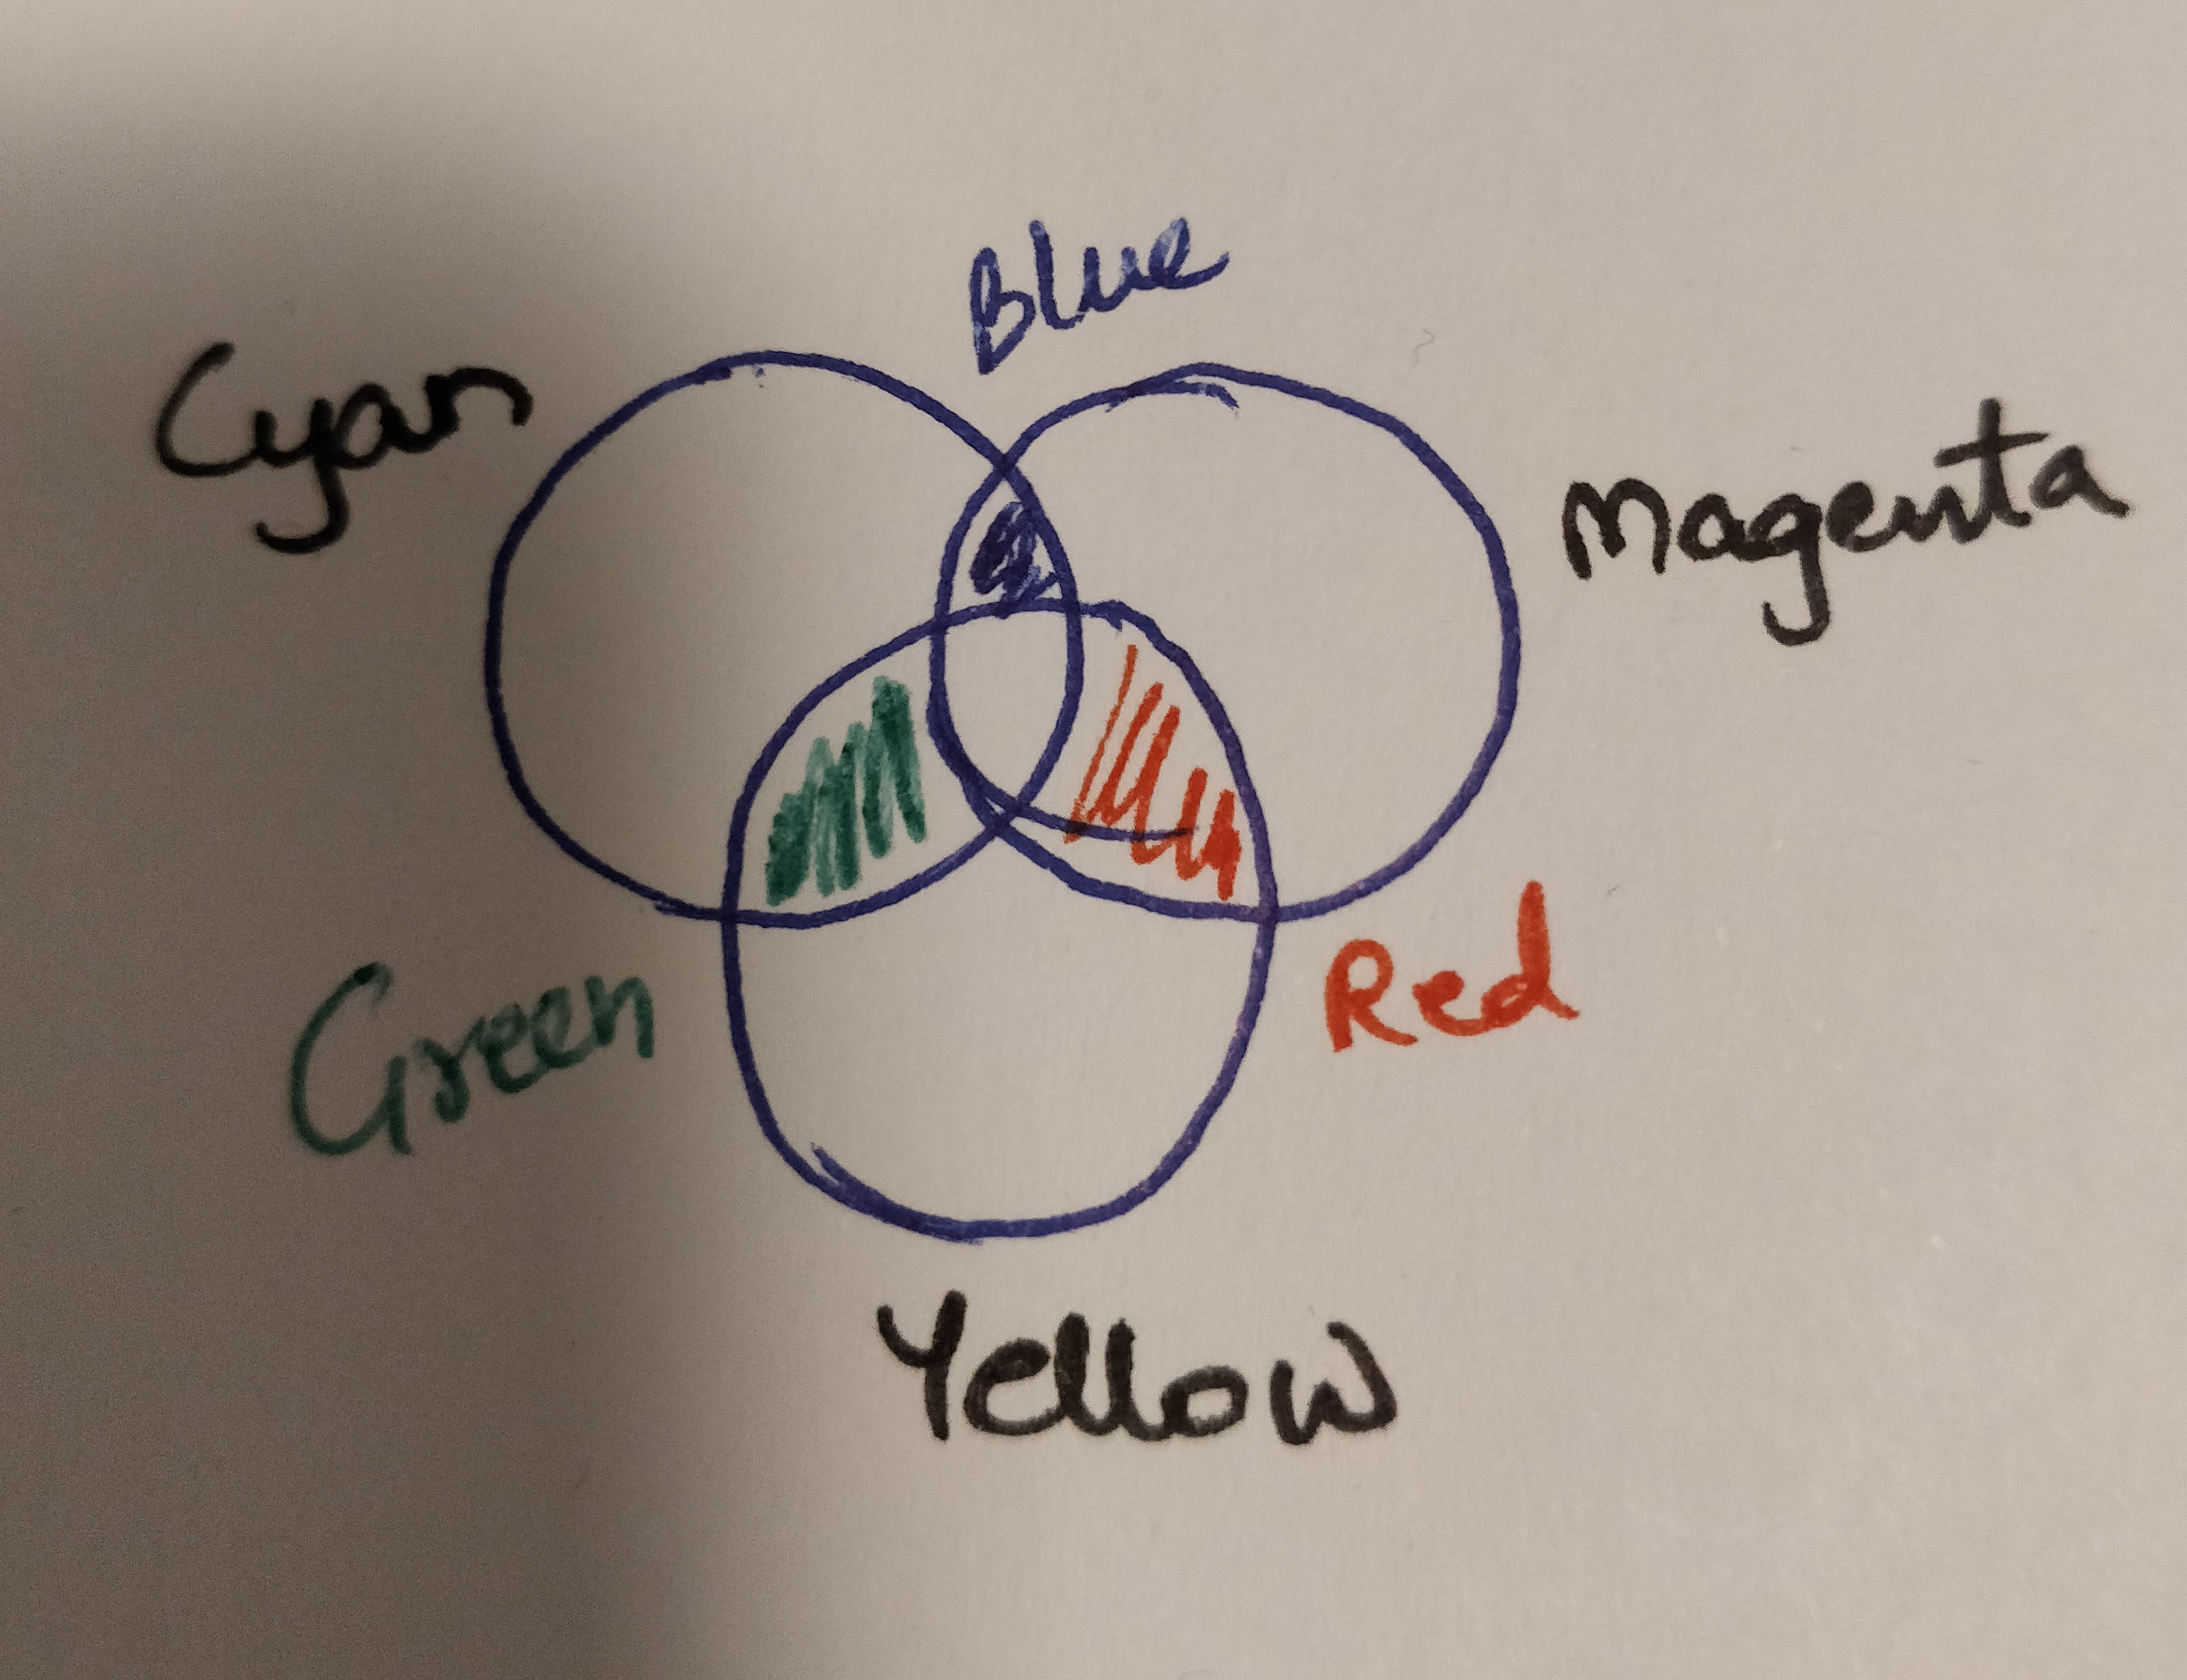 Blue
Cyan
Magenta
Green
Red
Yellow